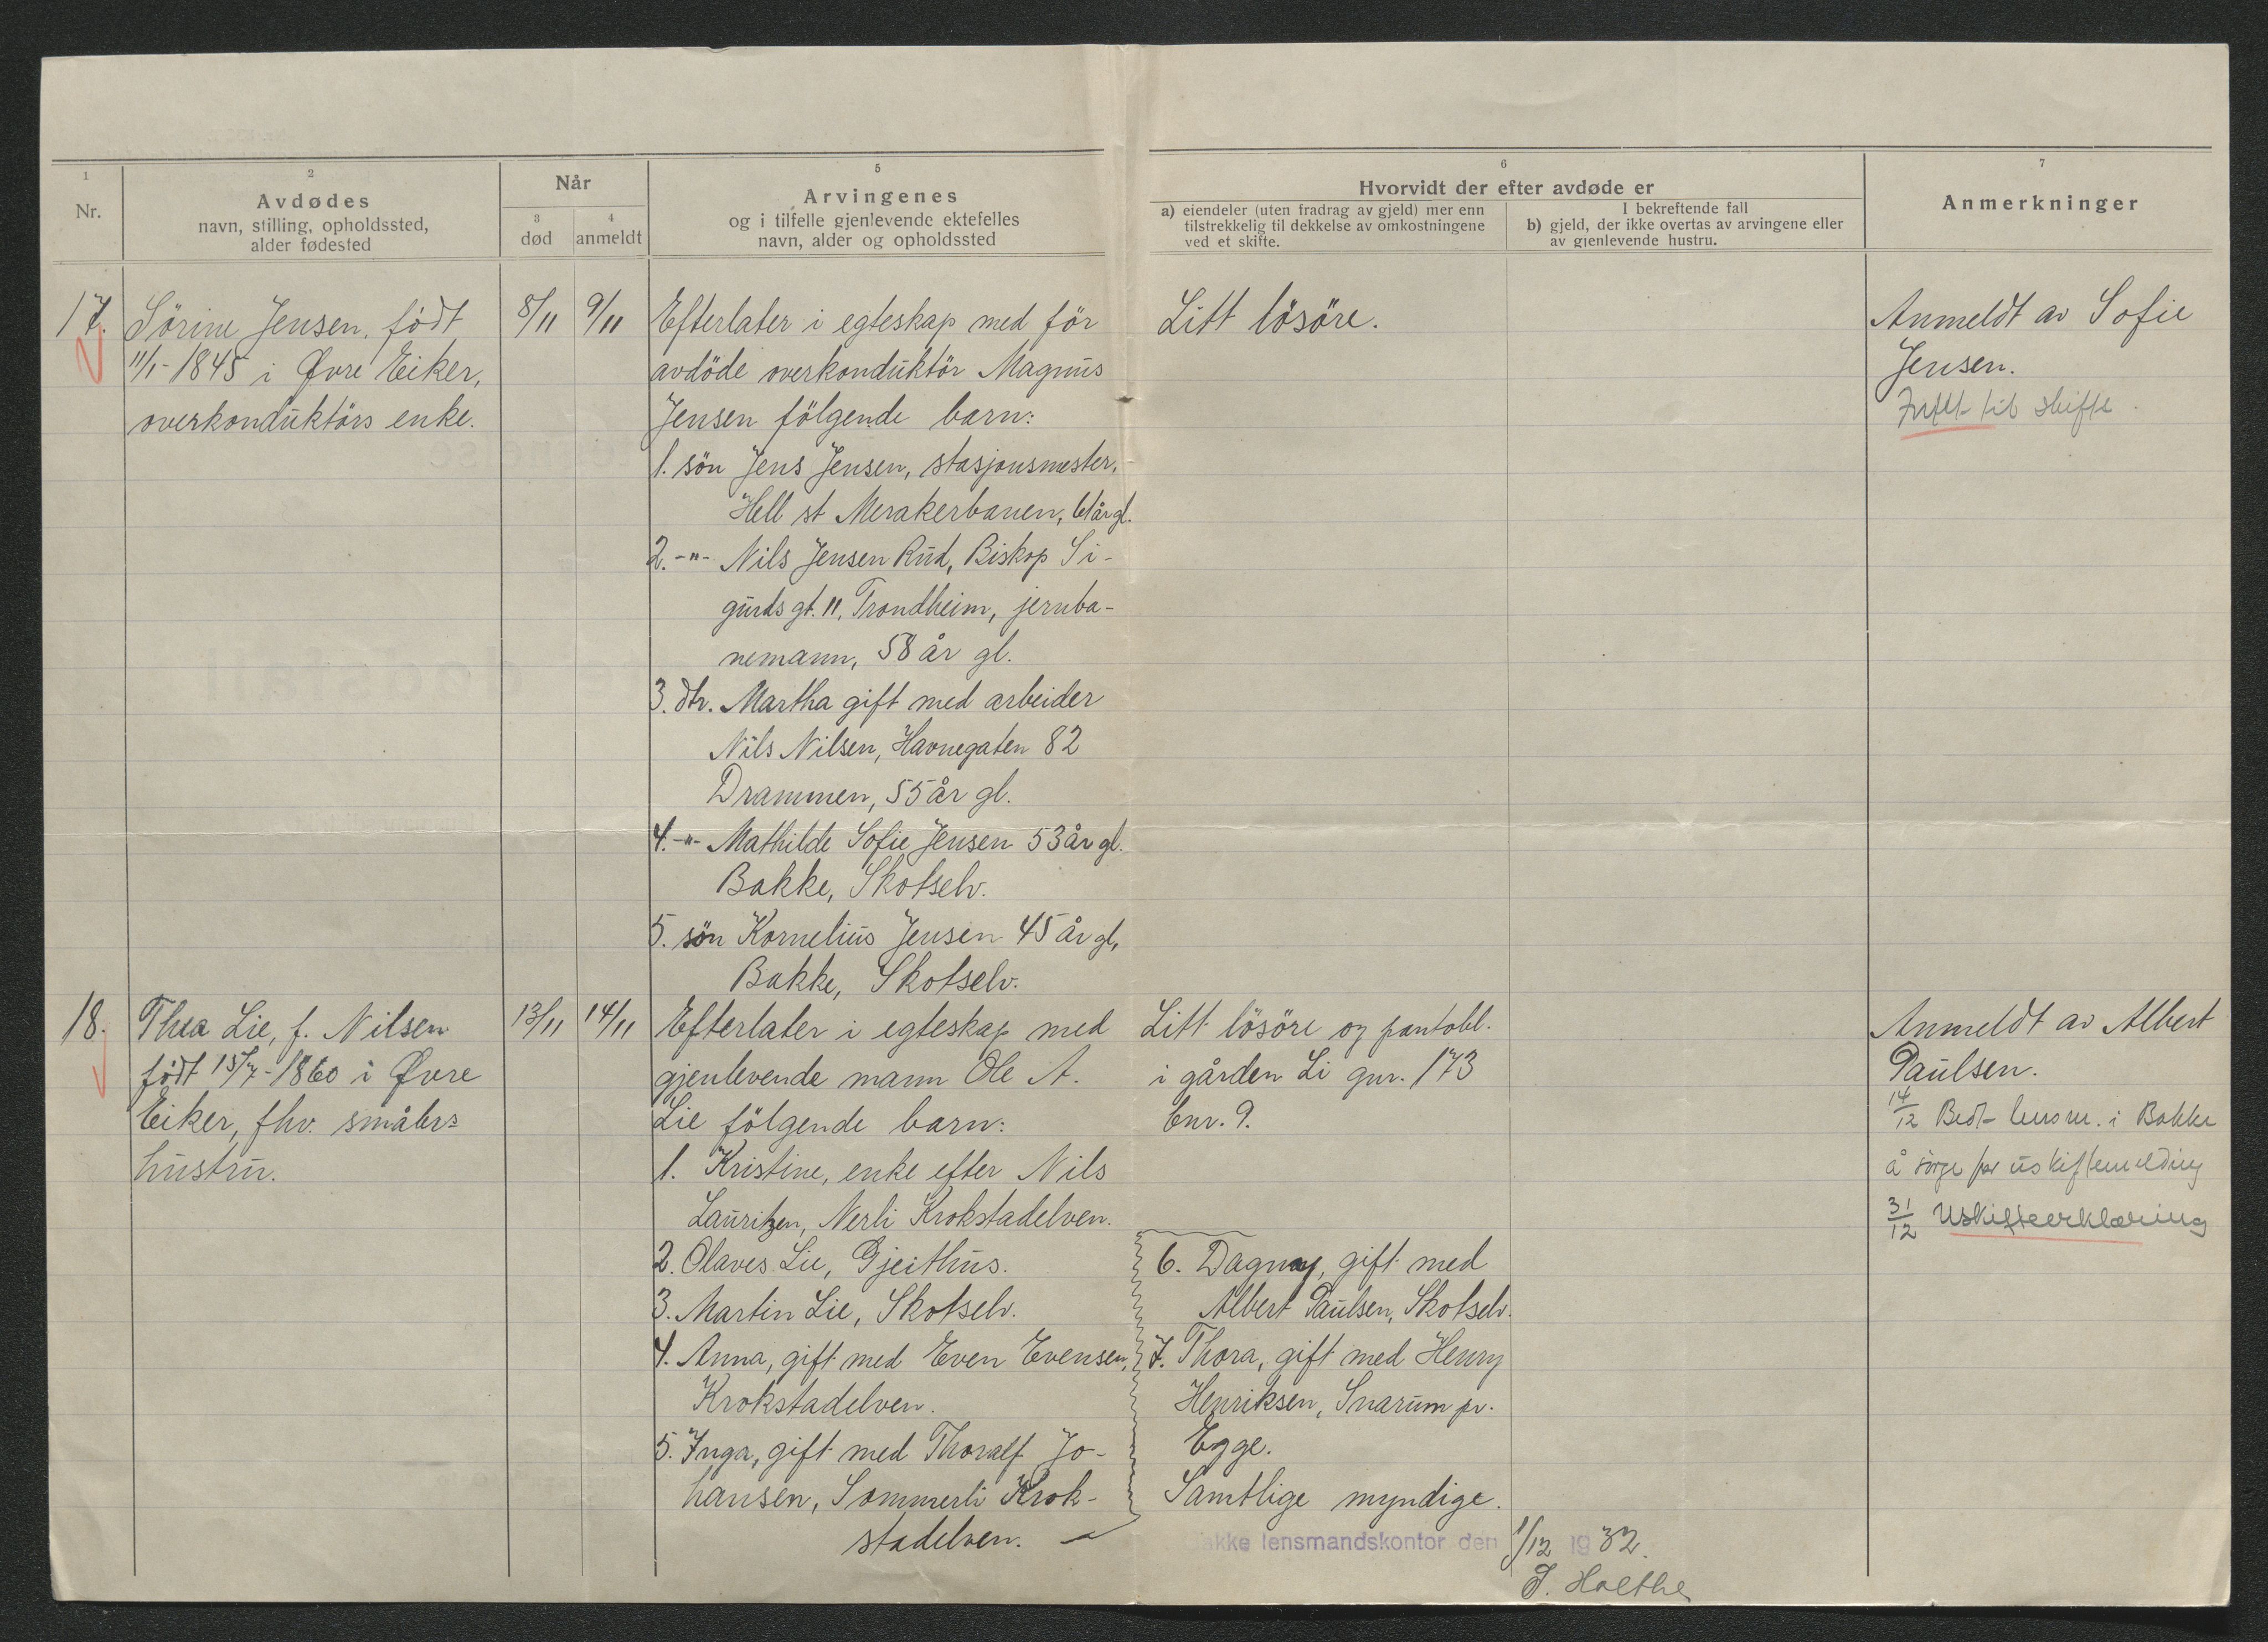 1
Nr.
2
Avdødes
navn, stilling, opholdssted,
alder fødested
Når
3
død
4
anmeldt
5
Arvingenes
og i tilfelle gjenlevende ektefelles
navn, alder og opholdssted
6
Hvorvidt der efter avdøde er
a) eiendeler (uten fradrag av gjeld) mer enn
tilstrekkelig til dekkelse av omkostningene
ved et skifte.
I bekreftende fall
b) gjeld, der ikke overtas av arvingene eller
av gjenlevende hustru.
7
Anmerkninger
17.
Sörine Jensen, födt
11/1-1845 i Øvre Eiker,
overkonduktörs enke.
8/11
9/11
Efterlater i egteskap med för
avdöde overkonduktör Magnus
Jensen fölgende barn:
1. sön Jens Jensen, stasjonsmester,
Hell st Merakerbanen, 61 år gl.
2. -"- Nils Jensen Rud, Biskop Si-
gurds gt. 11, Trondheim, jernba-
nemann, 58 år gl.
3. dtr. Martha gift med arbeider
Nils Nilsen, Havnegaten 82
Drammen, 55 år gl.
4. -"- Mathilde Sofie Jensen 53 år gl.
Bakke, Skotselv.
5. sön Kornelius Jensen 45 år gl,
Bakke, Skotselv.
Litt lösöre.
Anmeldt av Sofie
Jensen.
til skifte.
18.
Thea Lie, f. Nilsen
födt 15/7-1860 i Øvre
Eiker, fhv. småbr=
hustru.
13/11
14/11
Efterlater i egteskap med
gjenlevende mann Ole A.
Lie fölgende barn:
1. Kristine, enke efter Nils
Lauritzen, Nerli Krokstadelven.
2. Olaves Lie, Gjeithus.
3. Martin Lie, Skotselv.
4. Anna, gift med Even Evensen,
Krokstadelven.
5. Inga, gift med Thoralf Jo-
hansen, Sommerli Krok-
stadelven.
Litt lösöre og pantobl.
i gården Li gnr. 173
bnr. 9.
6. Dagny, gift med
Albert Paulsen, Skotselv.
7. Thora, gift med Henry
Henriksen, Snarum pr.
Egge.
Samtlige myndige.
akke lensmandskontor den 1/12 1932.
J. Holthe
Anmeldt av Albert
Paulsen.
14/12 Bedt lensm. i Bakke
å sörge for uskiftemelding
31/12 Uskifteerklæring